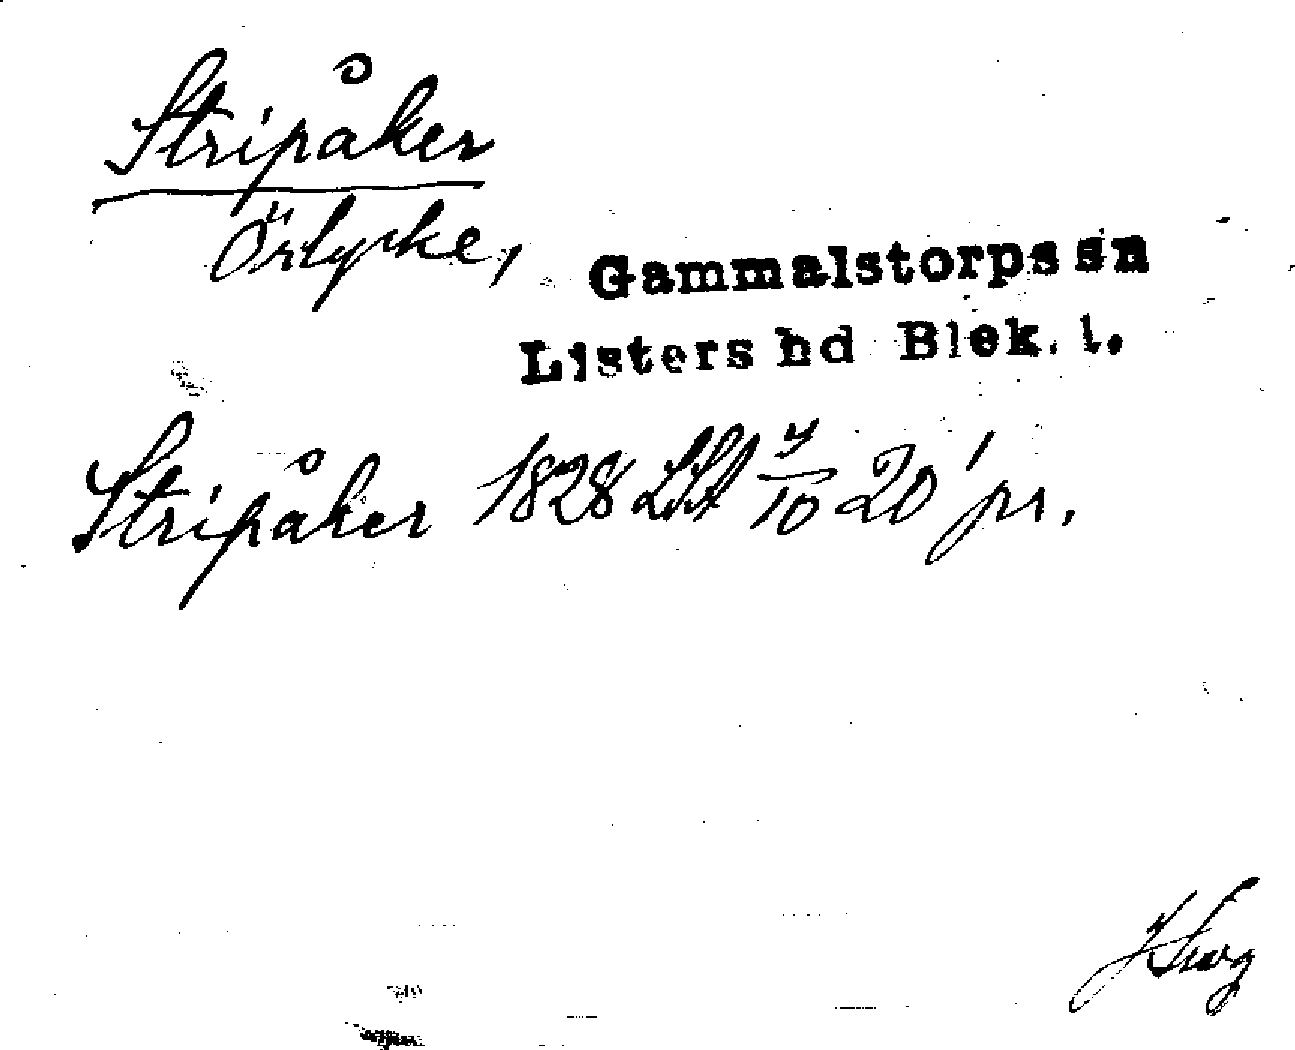 Stripåker
Örlycke,
Gammalstorps sn
Listers hd Blek. l.
Stripåker 1828 LSA 4/10 20' pr.